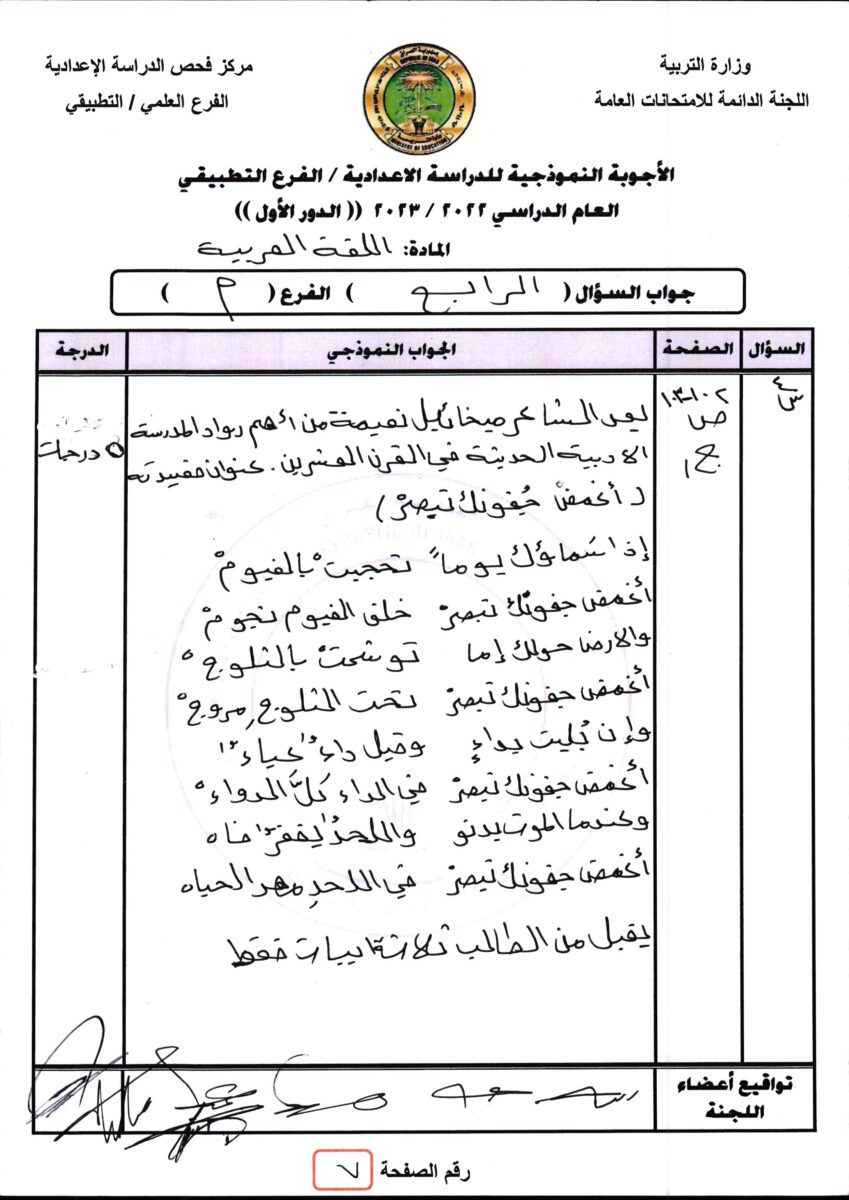 وزارة التربية
اللجنة الدائمة للامتحانات العامة
مركز فحص الدراسة الإعدادية
الفرع العلمي / التطبيقي
REPUBLIC OF IRAQ
MINISTRY OF EDUCATION
الأجوبة النموذجية للدراسة الاعدادية / الفرع التطبيقي
العام الدراسي ٢٠٢٢ / ٢٠٢٣ (( الدور الأول ))
المادة: اللغة العربية
جواب السؤال ( الرابع ) الفرع ( م )
السؤال الصفحة الجواب النموذجي الدرجة
س٤
ص ١٠٢-١٠٣
ج١
٥ درجات
يعد الشاعر ميخائيل نعيمة من أهم رواد المدرسة
الادبية الحديثة في القرن العشرين. عنوان قصيدته
( أغمضْ جُفونك تبصرْ )
إذا سَماؤك يوماً تحجبتْ بالغيومْ
أغمض جفونك تبصرْ خلف الغيوم نجومْ
والارض حولك إما توشحتْ بالثلوجْ
أغمض جفونك تبصرْ تحت الثلوجِ مروجْ
وإن بُليت بداءٍ وقيل داءٌ عياءْ
أغمض جفونك تبصرْ في الداء كلَّ الدواءْ
وعندما الموت يدنو واللحدُ يفغرُ فاه
أغمض جفونك تبصرْ في اللحدِ مهد الحياه
يقبل من الطالب ثلاثة ابيات فقط
تواقيع أعضاء
اللجنة
رقم الصفحة ٧